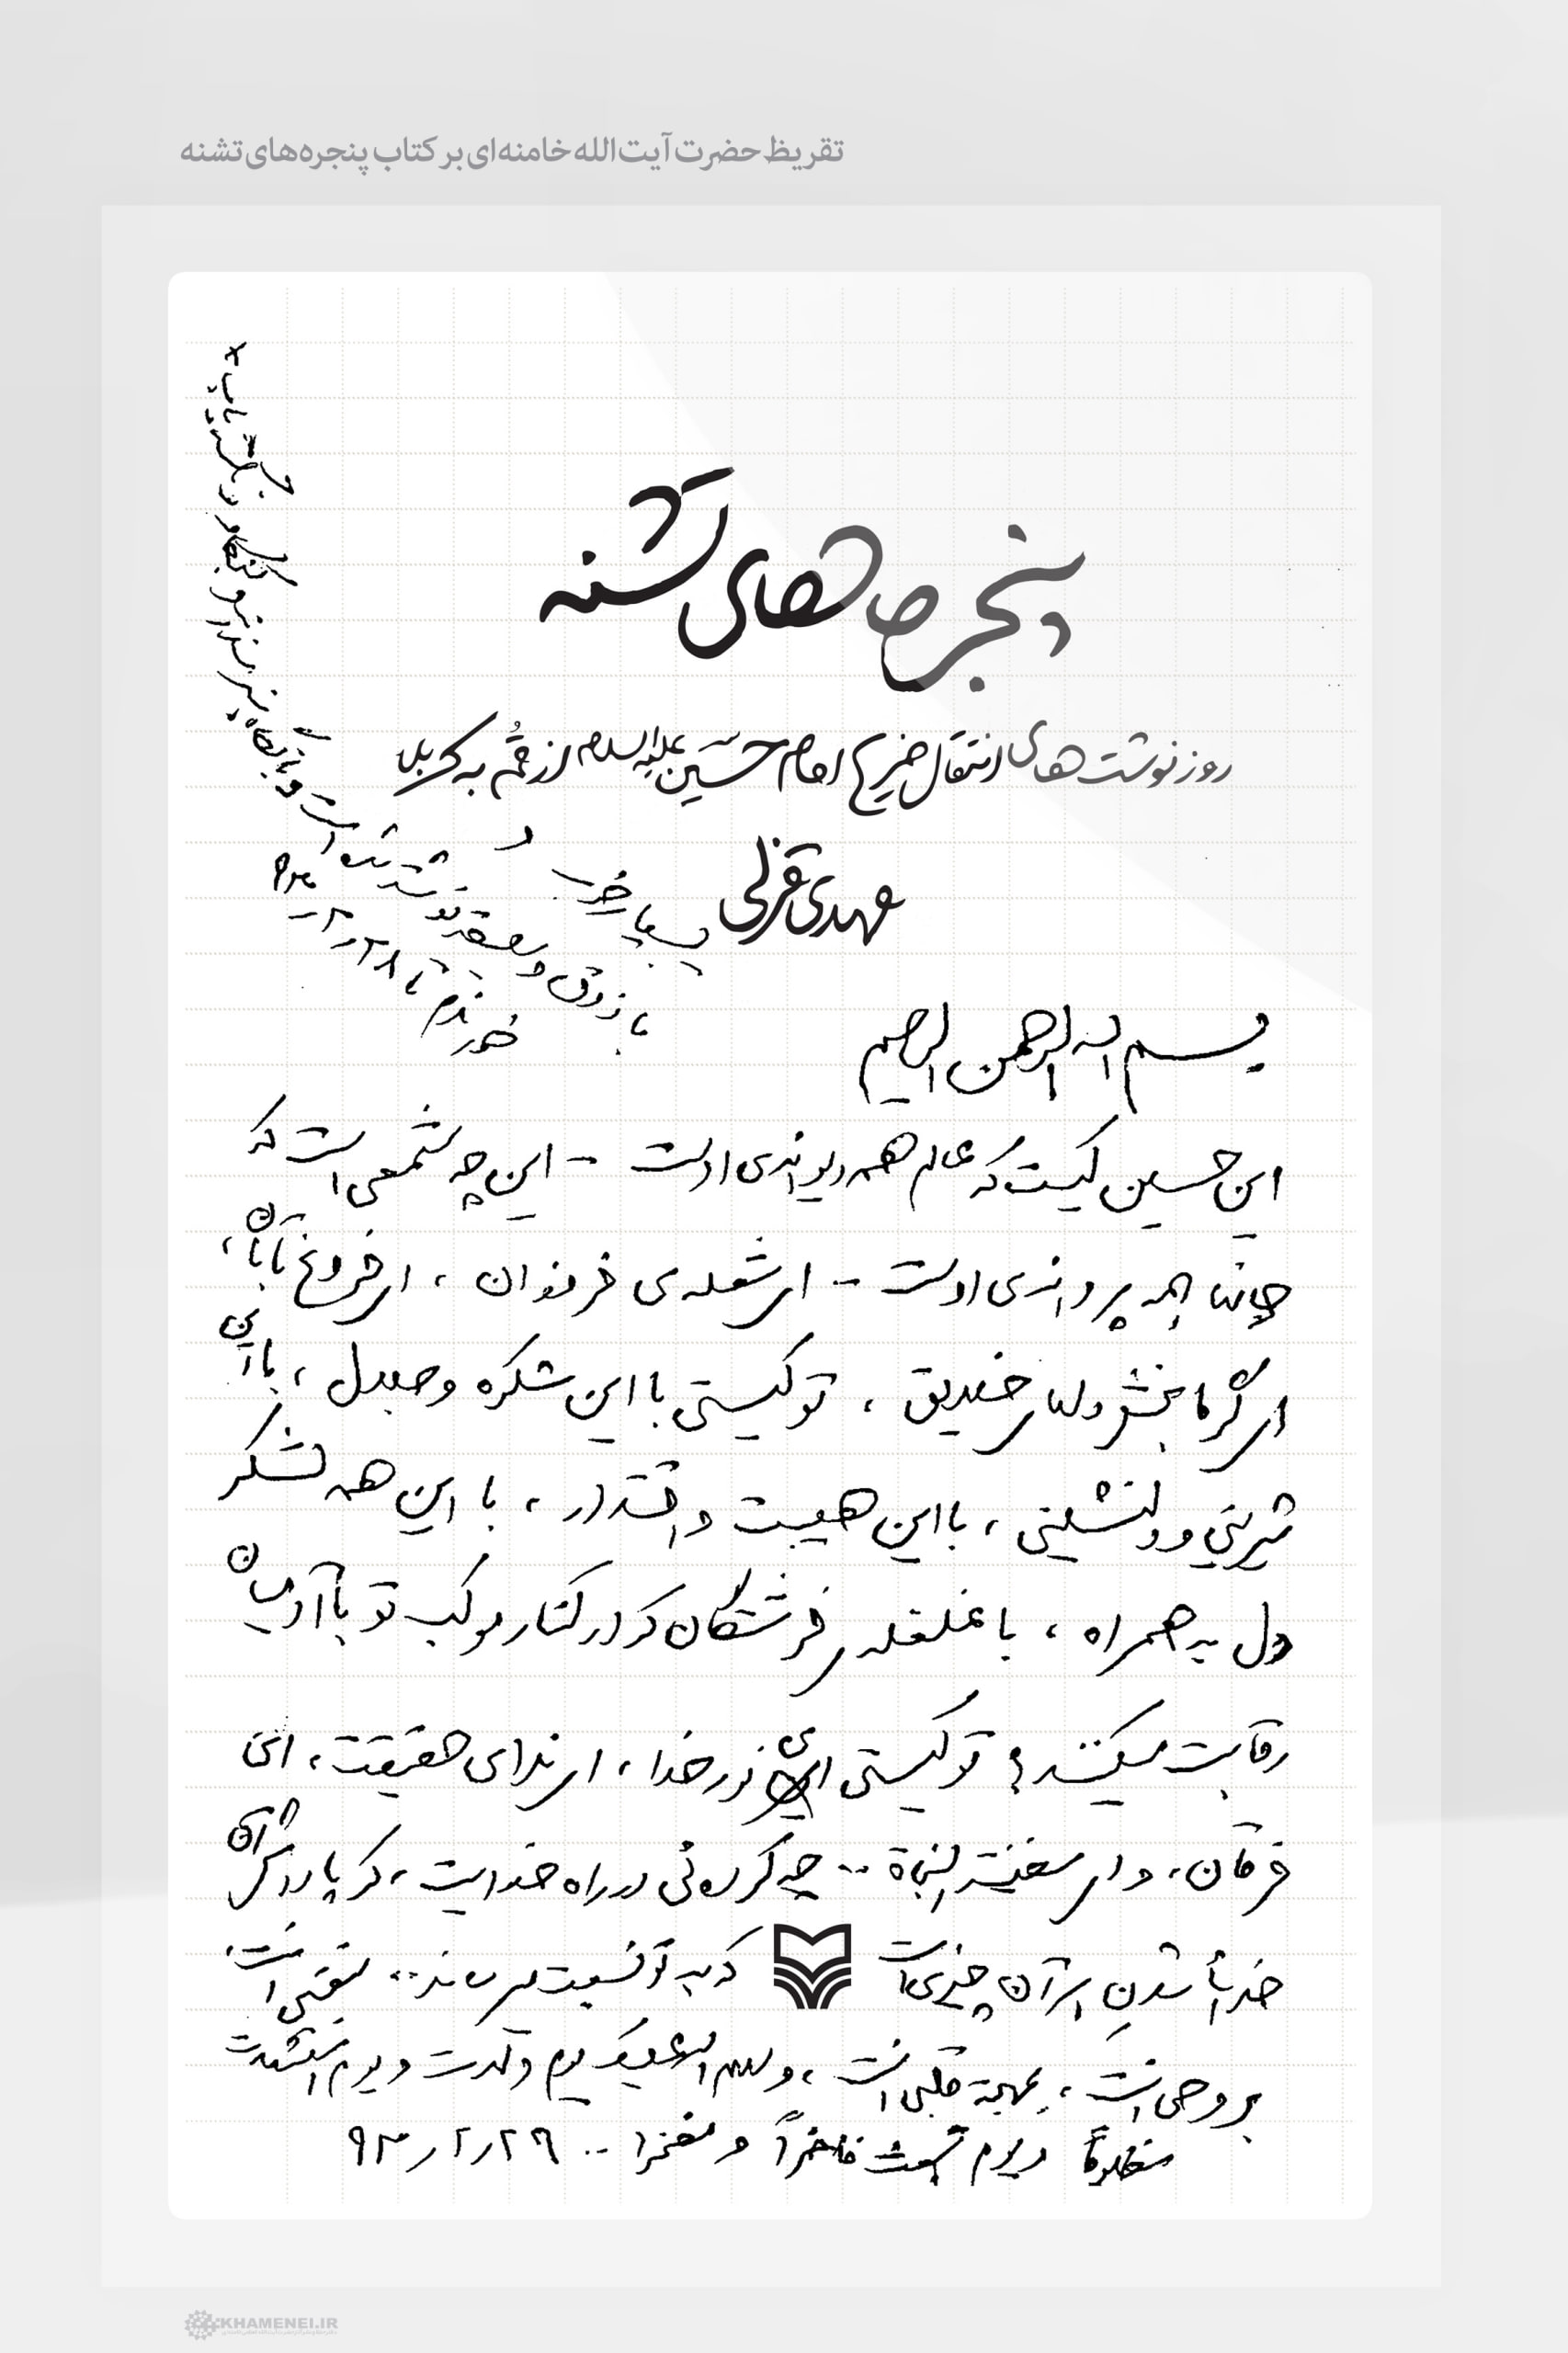 تقریظ حضرت آیت‌الله خامنه‌ای بر کتاب پنجره‌های تشنه
پنجره‌های تشنه
روزنوشت‌های انتقال ضریح امام حسین علیه‌السلام از قم به کربلا
مهدی قزلی
بسیار خوب و
با ذوق و سلیقه نوشته شده است و با نگاه هنرمندانه و کنجکاو و نکته‌یاب +
خوردم تا ۲۸ر۲ر
بسم الله الرحمن الرحیم
این حسین کیست که عالم همه دیوانه‌ی اوست - این چه شمعی است که
جانها همه پروانه‌ی اوست - ای شعله‌ی فروزان ، ای فروغ تابان ،
ای گرمابخش دلهای خلایق ، تو کیستی با این شکوه و جلال ، با این
شیرینی و دلنشینی ، با این هیبت و اقتدار ، با این همه لشکر
دل به همراه ، با غلغله‌ی فرشتگان که در کنار موکب تو با آدمیان
رقابت میکنند ؟ تو کیستی ای نور خدا ، ای ندای حقیقت ، ای
فرقان ، و ای سفینة النجاة .. چه کرده‌ئی در راه خدایت ، که پاداش آن
خدایی شدنِ هر آن چیزی است که به تو نسبت میرساند .. بنفسی انت ،
بروحی انت ، بمهجة قلبی انت ، و سلام الله علیک یوم ولدت و یوم استشهدت
مظلوماً و یوم تبعث فاخراً و مفتخرا .. ۲۹ر۲ر۹۳
KHAMENEI.IR